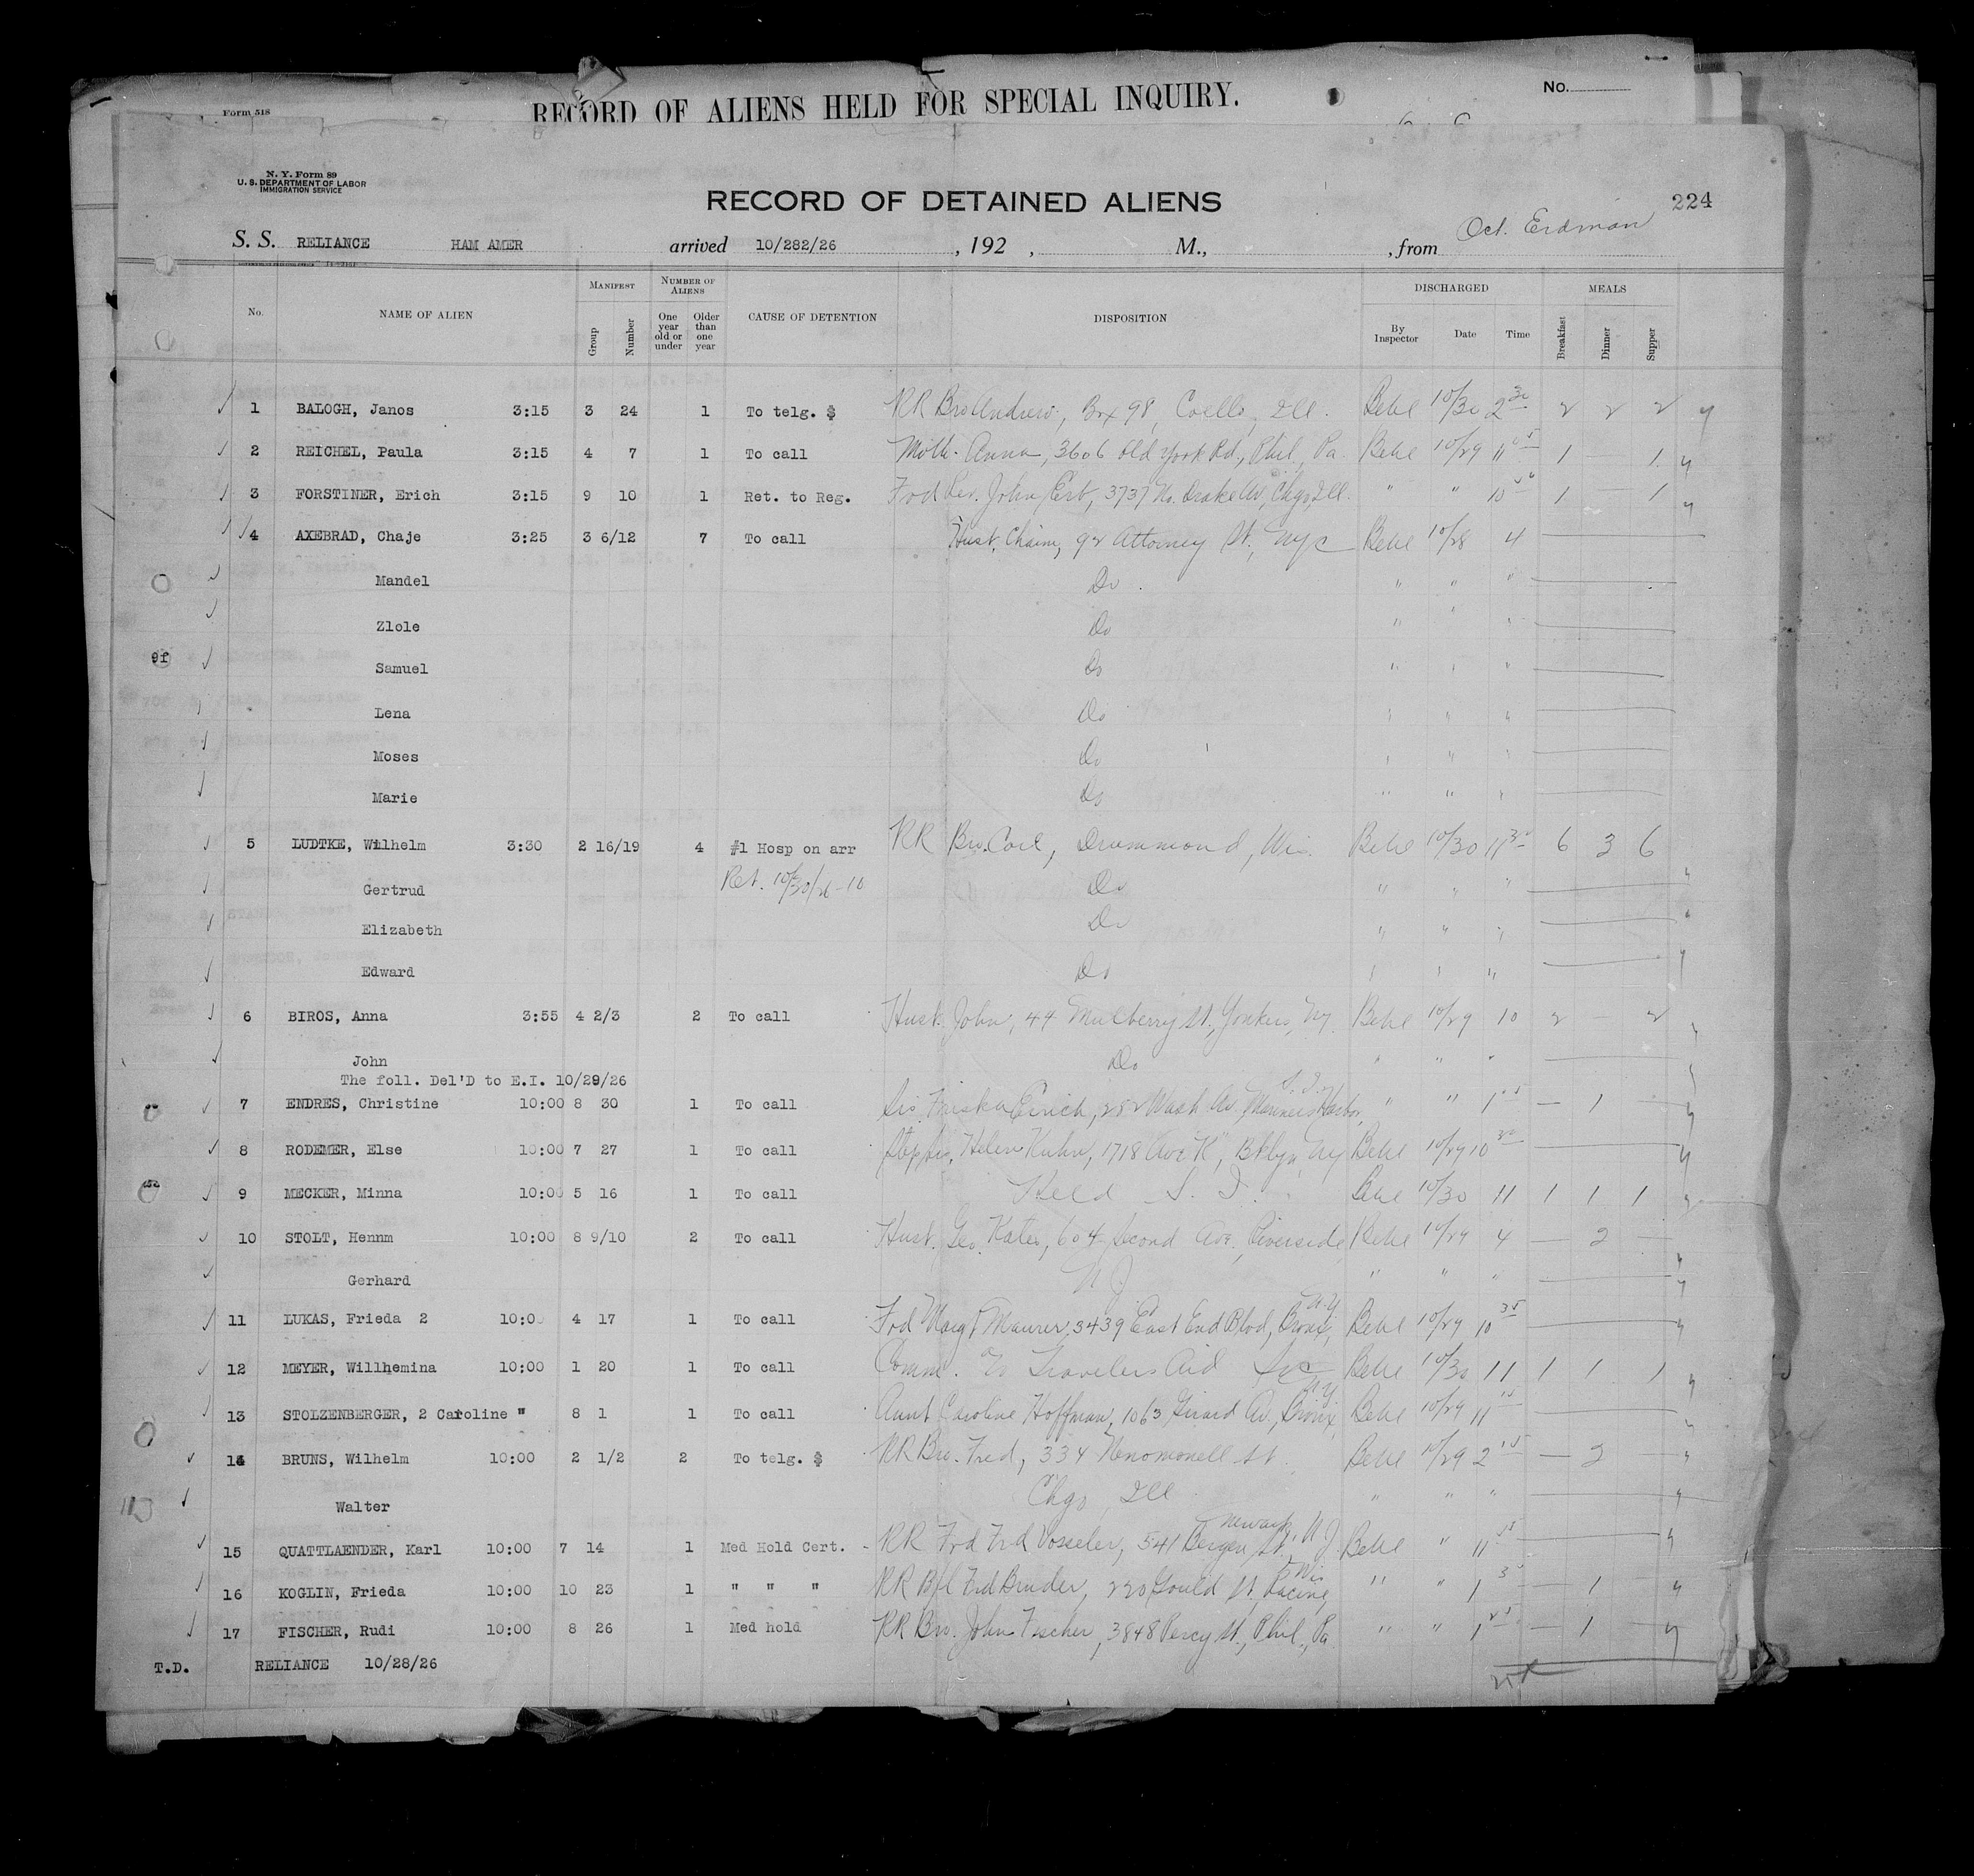 Form 518
RECORD OF ALIENS HELD FOR SPECIAL INQUIRY.
No.
N. Y. Form 89
U. S. DEPARTMENT OF LABOR
IMMIGRATION SERVICE
RECORD OF DETAINED ALIENS
224
S. S. RELIANCE HAM AMER arrived 10/282/26 , 192 , M., , from Oct. Erdman
No. NAME OF ALIEN MANIFEST Group Number NUMBER OF ALIENS One year old or under Older than one year CAUSE OF DETENTION DISPOSITION DISCHARGED By Inspector Date Time MEALS Breakfast Dinner Supper
1 BALOGH, Janos 3:15 3 24 1 To telg. $ RR Bro Andrew, Box 98, Coello, Ill. Behl 10/30 2 30 2 2 2
2 REICHEL, Paula 3:15 4 7 1 To call Moth. Anna, 3606 Old York Rd., Phil, Pa. Behl 10/29 11 05 1 — 1
3 FORSTINER, Erich 3:15 9 10 1 Ret. to Reg. Frd Rev. John Erb, 3737 No. Drake Av, Chgo, Ill. " " 10 1 — 1
4 AXEBRAD, Chaje 3:25 3 6/12 7 To call Husb. Chaim, 92 Attorney St., Nyc Behl 10/28 4
Mandel Do " " "
Zlole Do " " "
9f Samuel Do " " "
Lena Do " " "
Moses Do " " "
Marie Do " " "
5 LUDTKE, Wilhelm 3:30 2 16/19 4 #1 Hosp on arr RR Bro. Carl, Drummond, Wis. Behl 10/30 11 30 6 3 6
Gertrud Ret. 10/30/26 - 10 Do " " "
Elizabeth Do " " "
Edward Do " " "
6 BIROS, Anna 3:55 4 2/3 2 To call Husb. John, 44 Mulberry St., Yonkers, Ny. Behl 10/29 10 2 — 2
John Do " " "
The foll. Del'D to E.I. 10/29/26
7 ENDRES, Christine 10:00 8 30 1 To call Sis. 252 Wash Av, Mariners Harbor, S.I. " " 1 — 1 —
8 RODEMER, Else 10:00 7 27 1 To call Stepsis, Helen Kuhn, 1718 Ave "K", Bklyn, Ny Behl 10/29 10 30
9 MECKER, Minna 10:00 5 16 1 To call Held S. I. Behl 10/30 11 1 1 1
10 STOLT, Hennm 10:00 8 9/10 2 To call Husb. Geo. Kates, 604 Second Ave, Riverside Behl 10/29 4 — 2 —
Gerhard N J " " "
11 LUKAS, Frieda 2 10:00 4 17 1 To call Frd Margt Maurer, 3439 East End Blvd, Bronx, N.Y Behl 10/29 10 35
12 MEYER, Willhemina 10:00 1 20 1 To call Comm. Travelers Aid Behl 10/30 11 1 1 1
13 STOLZENBERGER, 2 Caroline " 8 1 1 To call Aunt Caroline Hoffman, 1063 Girard Av., Bronx, NY Behl 10/29 11 15
14 BRUNS, Wilhelm 10:00 2 1/2 2 To telg. $ RR Bro. Fred, 334 St Behl 10/29 2 15 — 2 —
Walter Chgo, Ill " " "
15 QUATTLAENDER, Karl 10:00 7 14 1 Med Hold Cert. RR Frd Frd Vosseler, 541 Bergen St. Newark, N J. Behl " 11
16 KOGLIN, Frieda 10:00 10 23 1 " " " RR Frd Bruder, 220 Gould St, Racine, Wis " " 1 30 — 1 —
17 FISCHER, Rudi 10:00 8 26 1 Med hold RR Bro. John Fischer, 3848 Percy St., Phil., Pa " " 1 — 1 —
T.D. RELIANCE 10/28/26